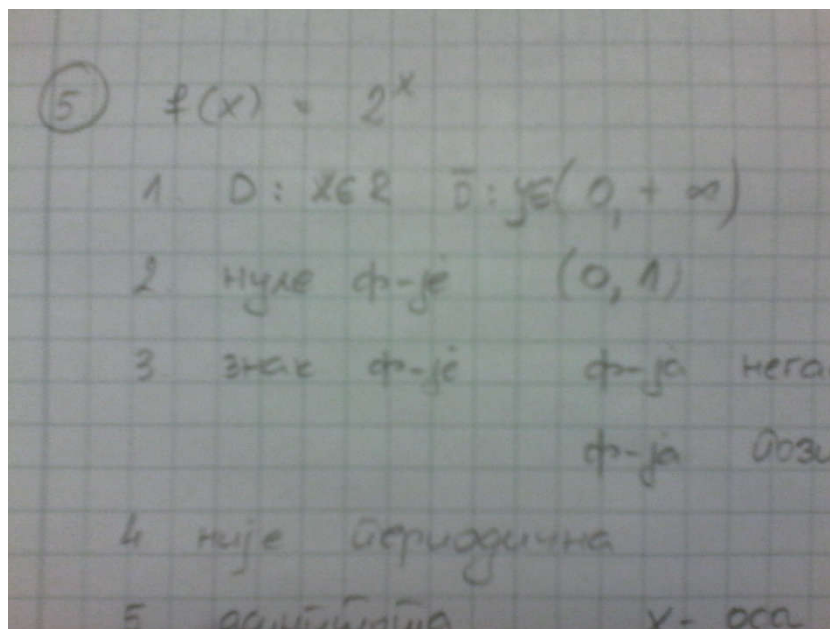 5 f(x) = 2^x
1. D: x∈R D̄: y∈(0, +∞)
2 нуле ф-је (0, 1)
3 знак ф-је ф-ја нега
ф-ја пози
4 није периодична
5 асимптота x-оса